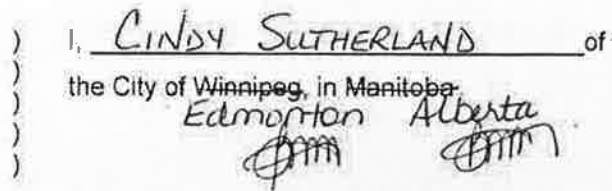 ) I, CINDY SUTHERLAND of
) the City of Winnipeg, in Manitoba.
) Edmonton Alberta
)
)